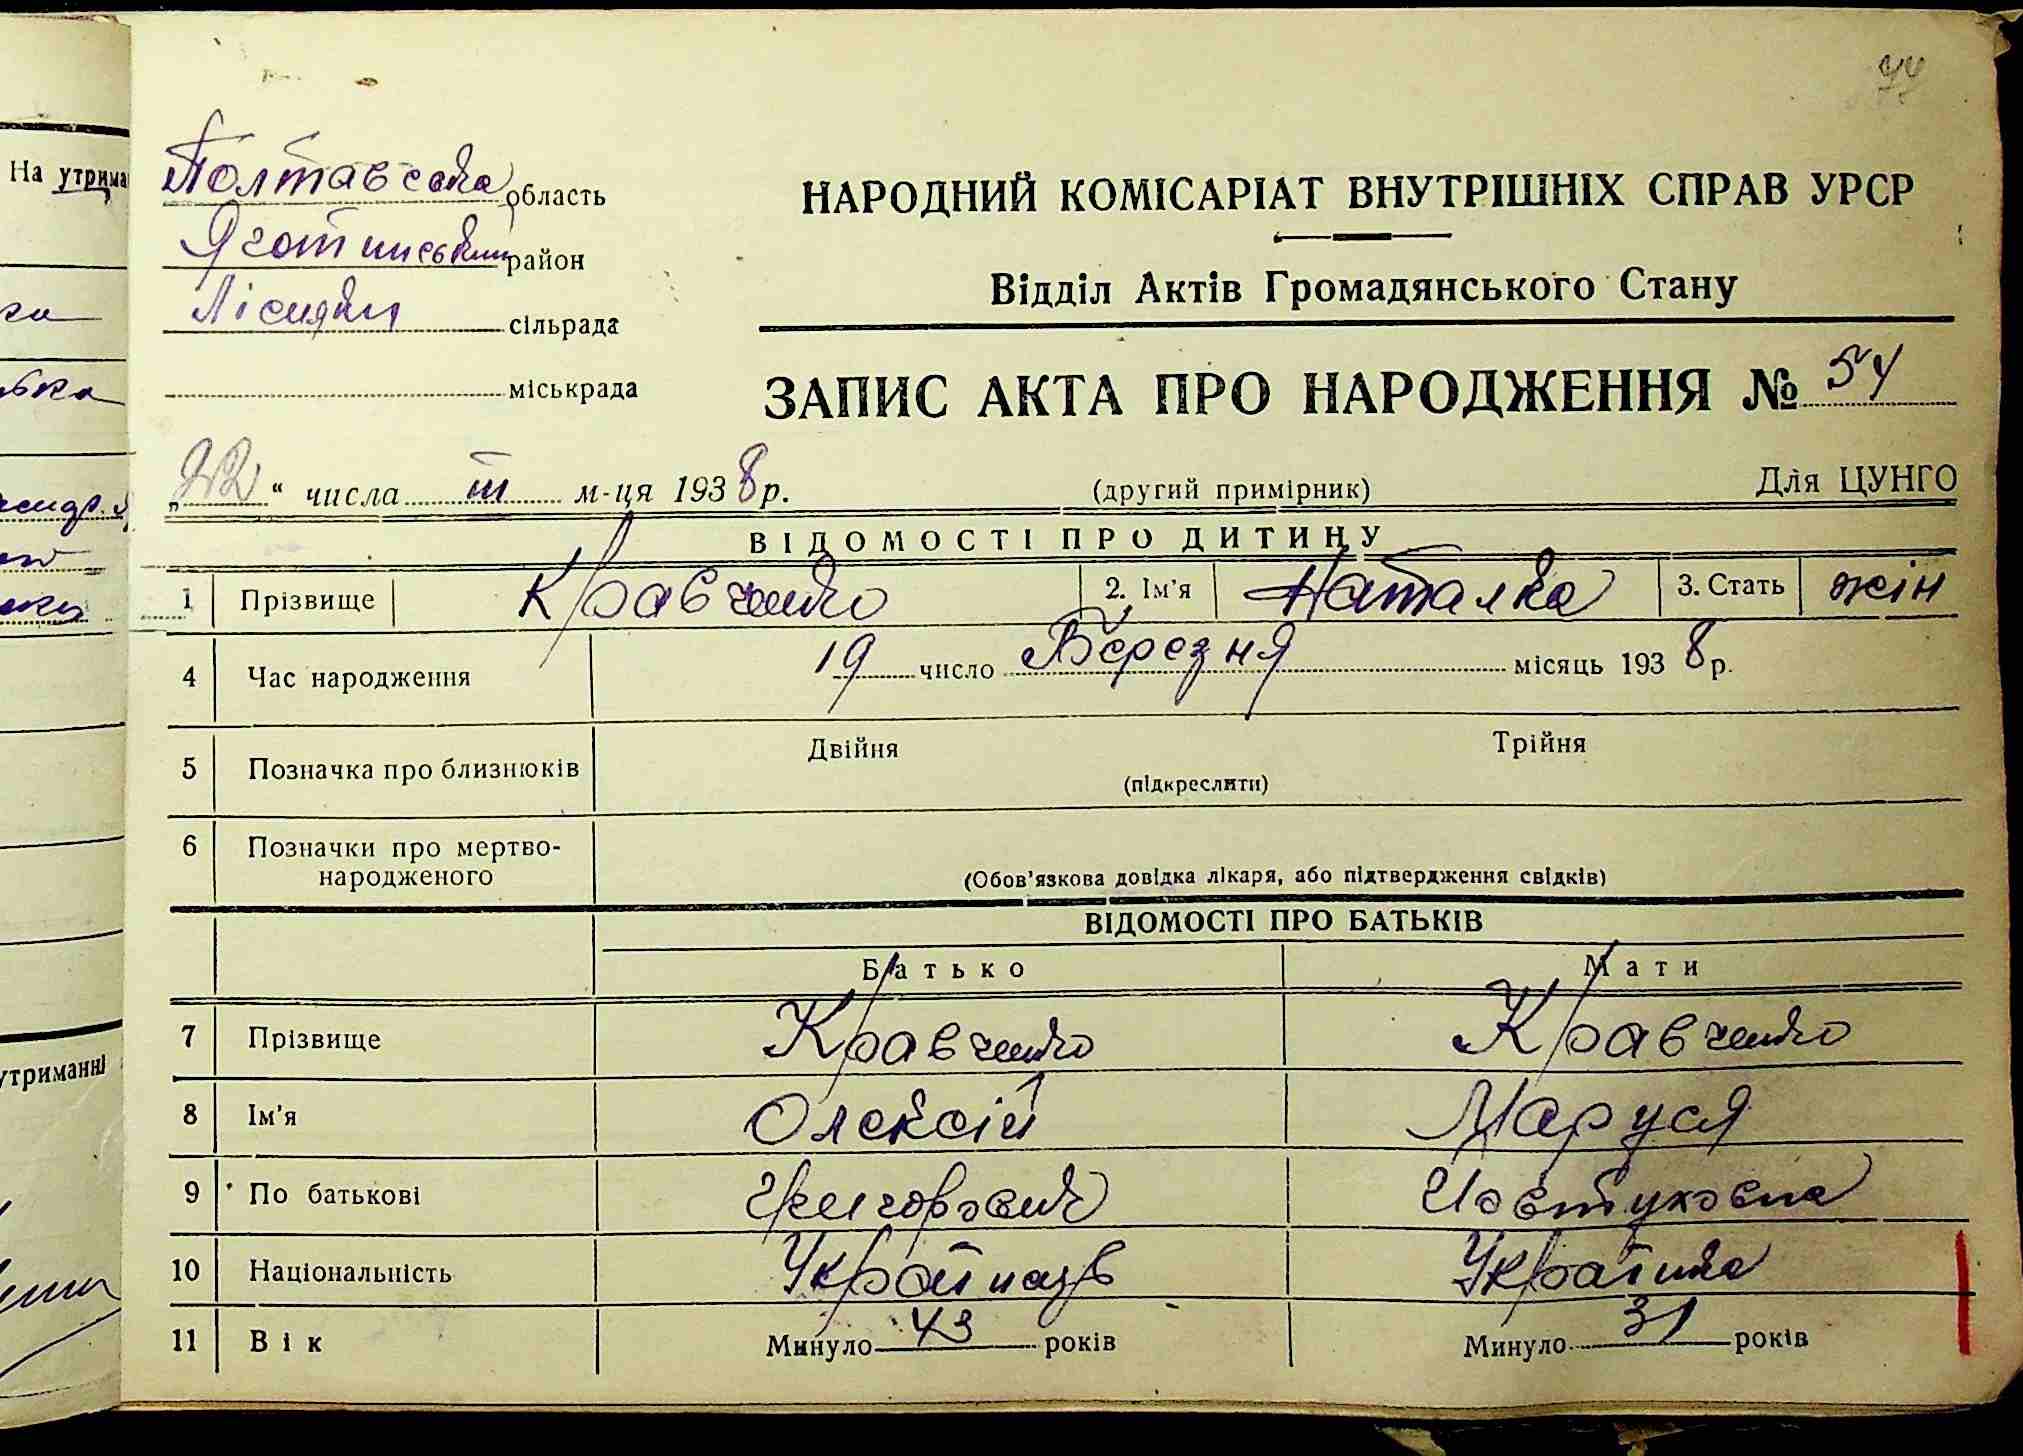 44
На утрима
Полтавська область
Яготинський район
сільрада
міськрада
НАРОДНИЙ КОМІСАРІАТ ВНУТРІШНІХ СПРАВ УРСР
Відділ Актів Громадянського Стану
ЗАПИС АКТА ПРО НАРОДЖЕННЯ № 54
„22“ числа III м-ця 1938 р. (другий примірник) Для ЦУНГО
ВІДОМОСТІ ПРО ДИТИНУ
1 Прізвище Кравченко 2. Ім'я Наталка 3. Стать жін
4 Час народження 19 число Березня місяць 1938 р.
5 Позначка про близнюків Двійня Трійня
(підкреслити)
6 Позначки про мертво-
народженого (Обов'язкова довідка лікаря, або підтвердження свідків)
ВІДОМОСТІ ПРО БАТЬКІВ
Батько Мати
7 Прізвище Кравченко Кравченко
8 Ім'я Олексій Маруся
9 По батькові Григорович
10 Національність Українець Українка
11 Вік Минуло 43 років Минуло 31 років
утриманні